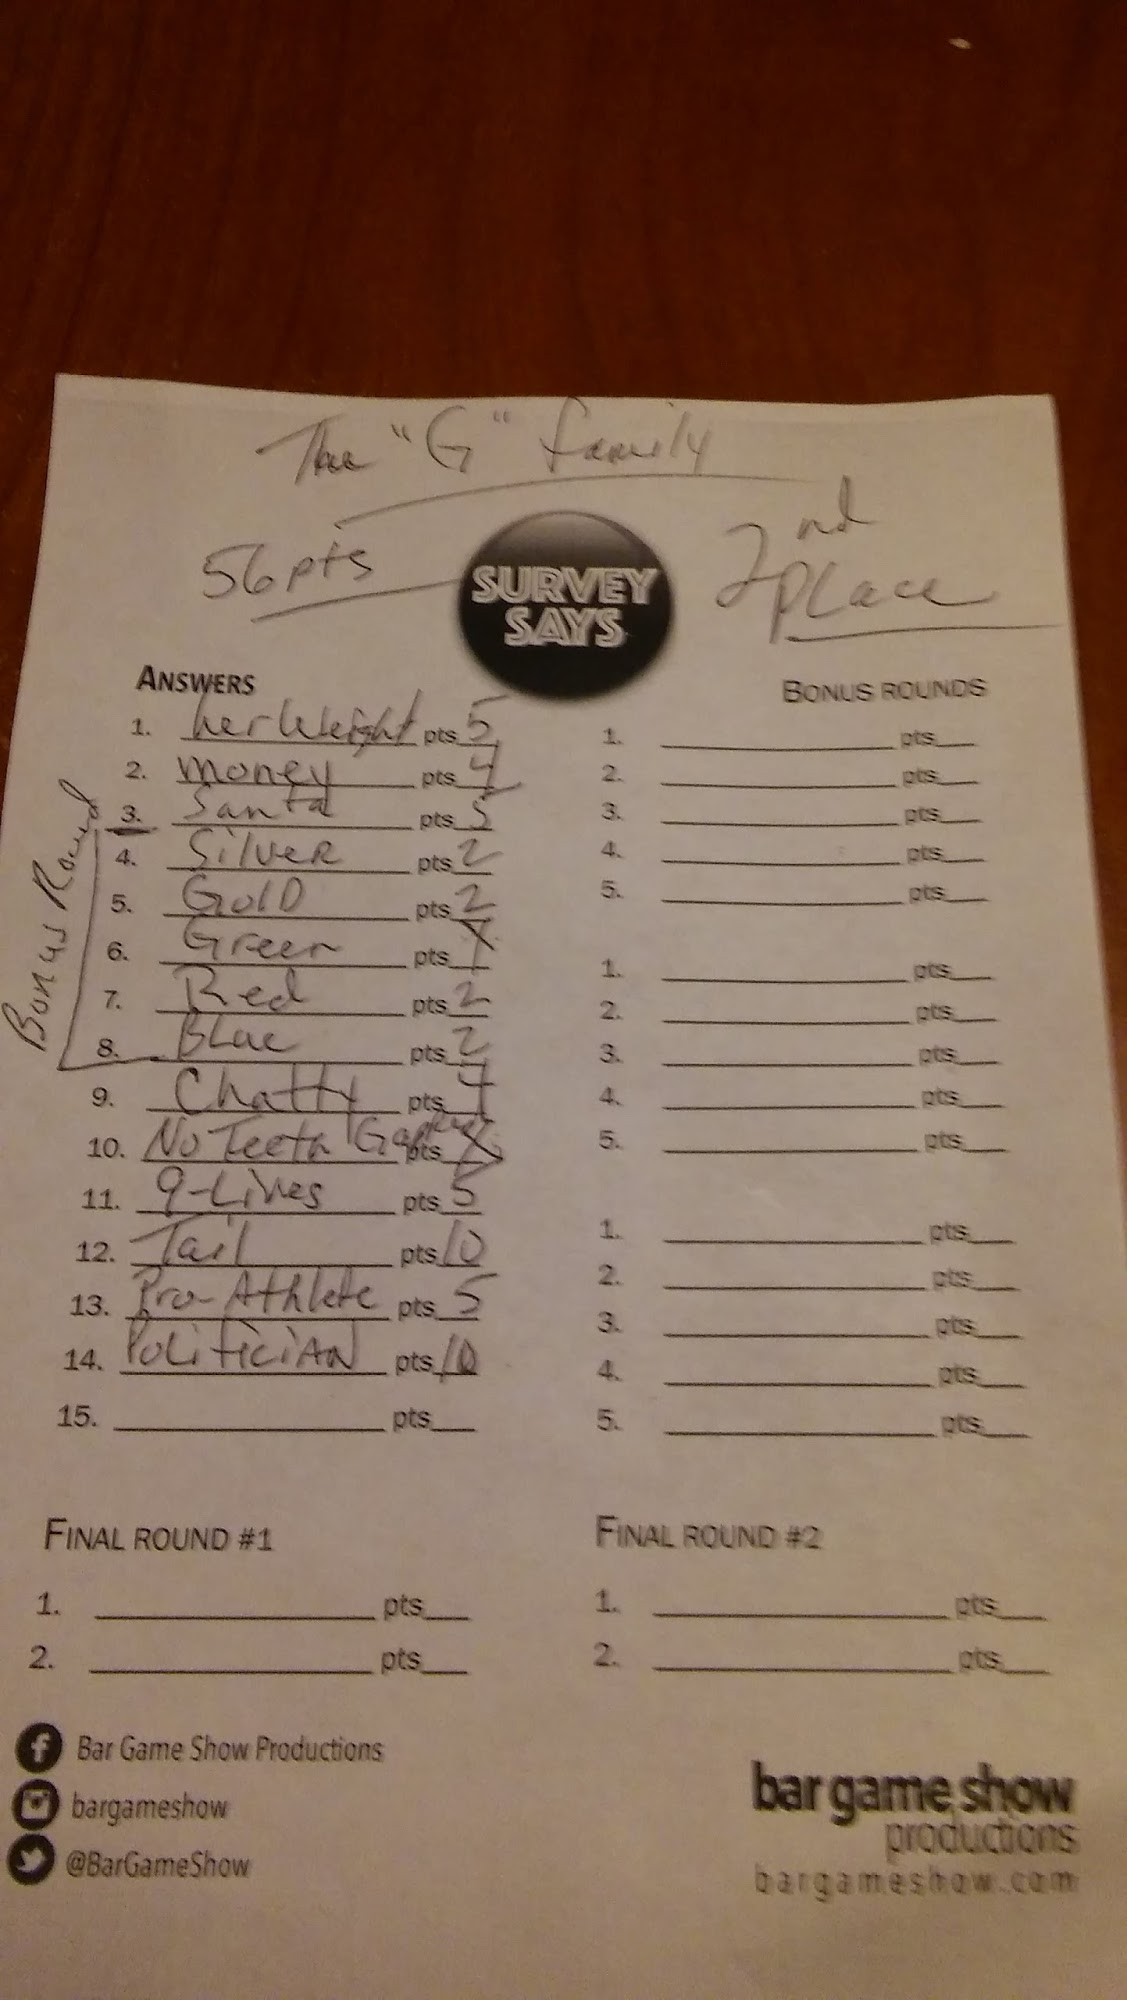 The "G" family
56pts
2nd
place
SURVEY
SAYS
ANSWERS
1. her Weight pts 5
2. money pts 4
3. Santa pts 5
4. Silver pts 2
5. Gold pts 2
6. Green pts X
7. Red pts 2
8. Blue pts 2
9. Chatty pts 4
10. No Teeth pts X
11. 9-Lives pts 5
12. Tail pts 10
13. Pro-Athlete pts 5
14. Politician pts 10
15. pts
Bonus Round
BONUS ROUNDS
1. pts
2. pts
3. pts
4. pts
5. pts
1. pts
2. pts
3. pts
4. pts
5. pts
1. pts
2. pts
3. pts
4. pts
5. pts
FINAL ROUND #1
1. pts
2. pts
FINAL ROUND #2
1. pts
2. pts
Bar Game Show Productions
bargameshow
@BarGameShow
bar game show
productions
bargameshow.com